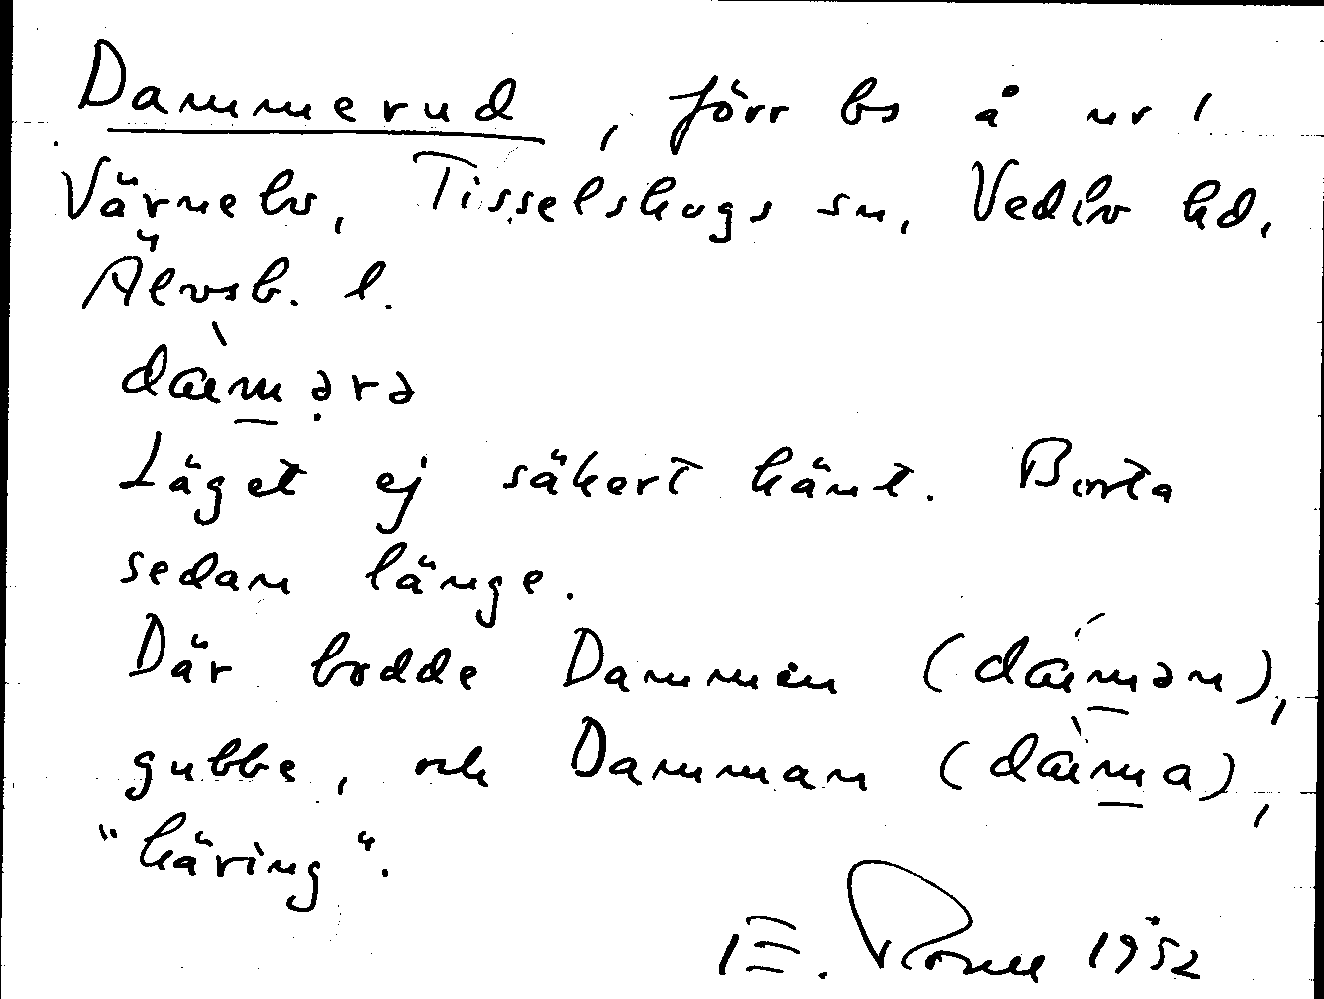 Dammerud, förr bs å nr 1
Värnebo, Tisselskogs sn, Vedbo hd,
Älvsb. l.
dàm̠ərə
Läget ej säkert känt. Borta
sedan länge.
Där bodde Dammen (dám̠ən),
gubbe, och Damman (dàm̠a),
"käring".
E. 1952